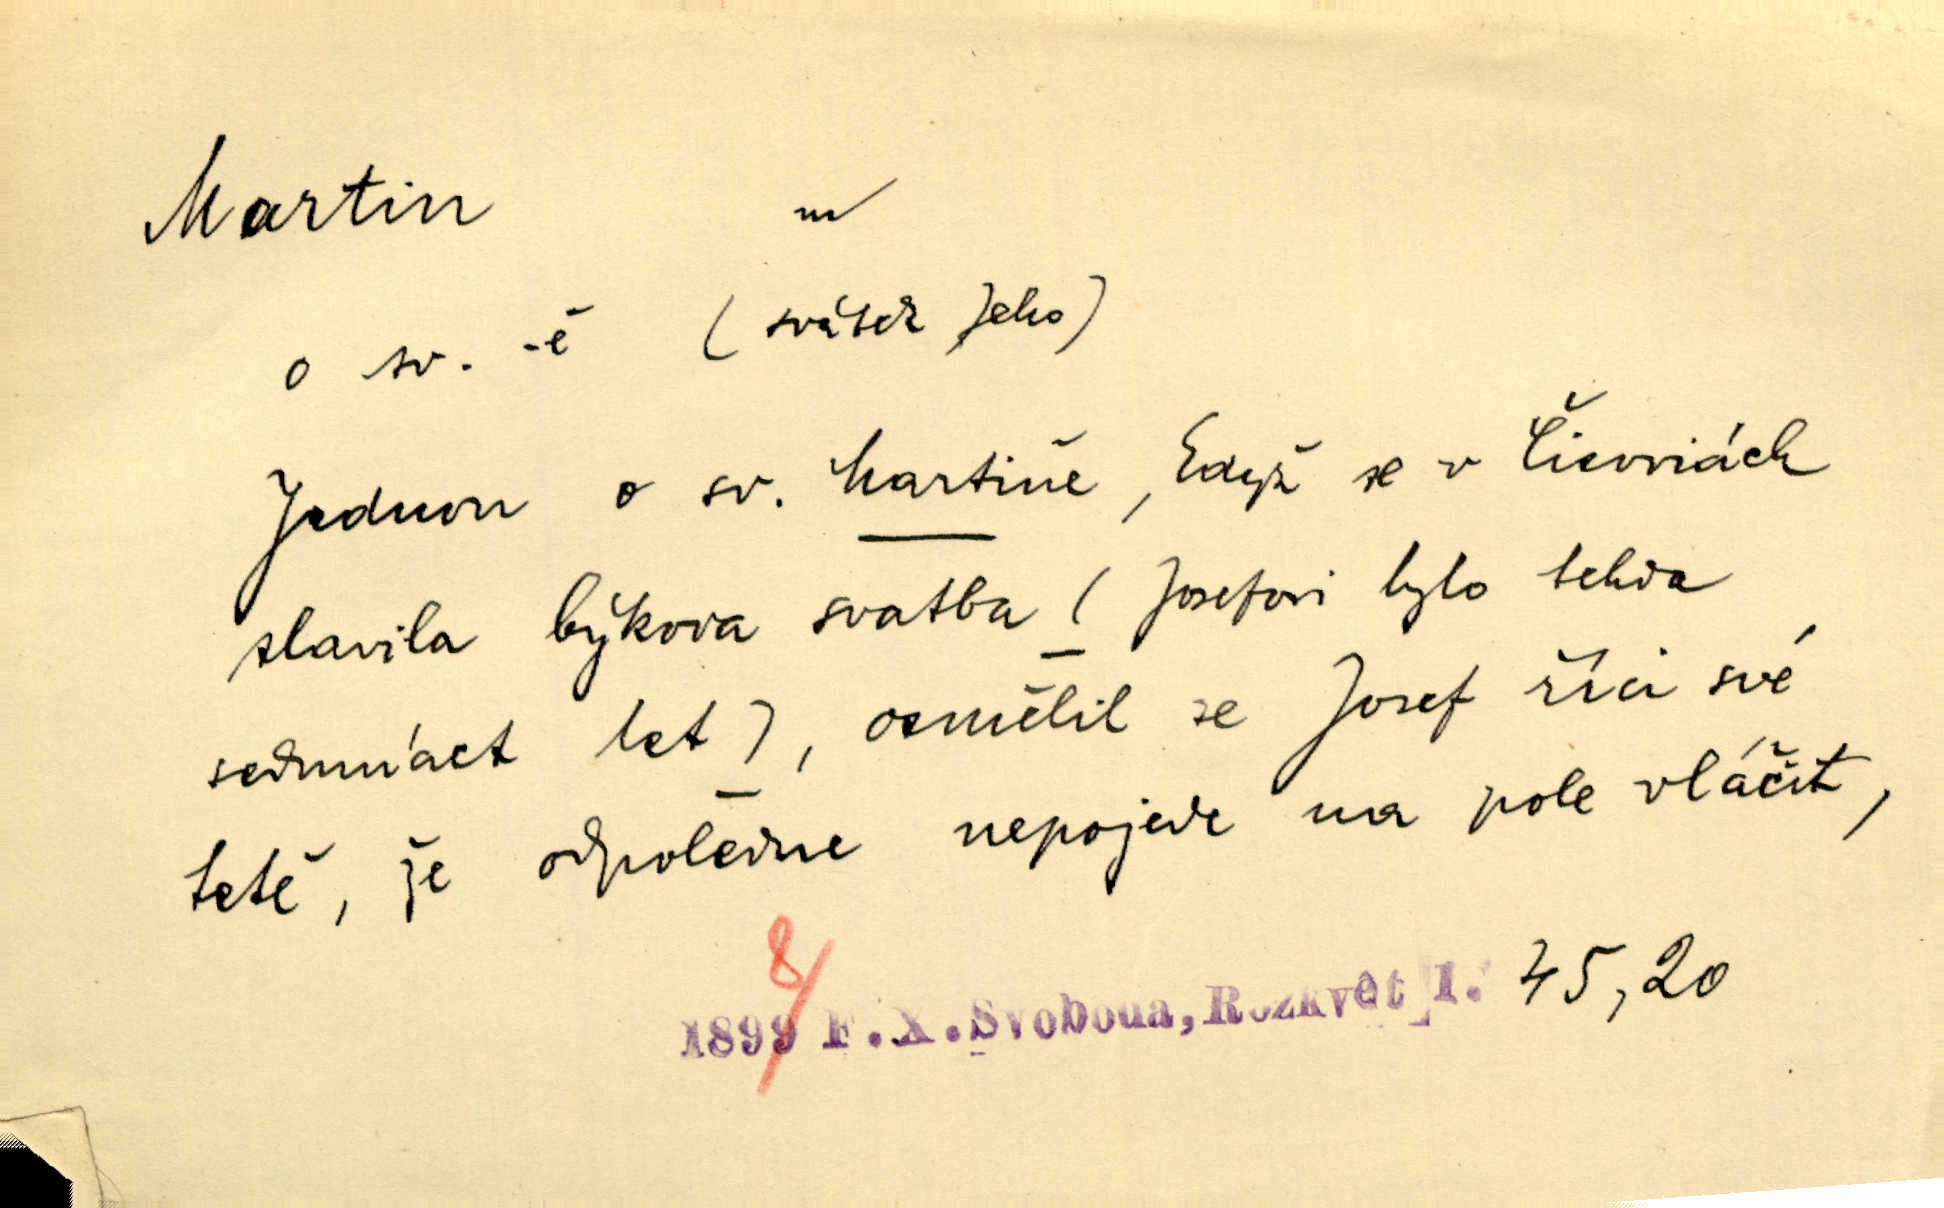 Martin m
o sv. -ě (svátek jeho)
Jednou o sv. Martině, když se v
slavila býkova svatba (Josefovi bylo tehda
sedmnáct let), osmělil se Josef říci své
tetě, že odpoledne nepojede na pole vláčit,
8
1899 F.X.Svoboda, Rozkvět I. 45,20